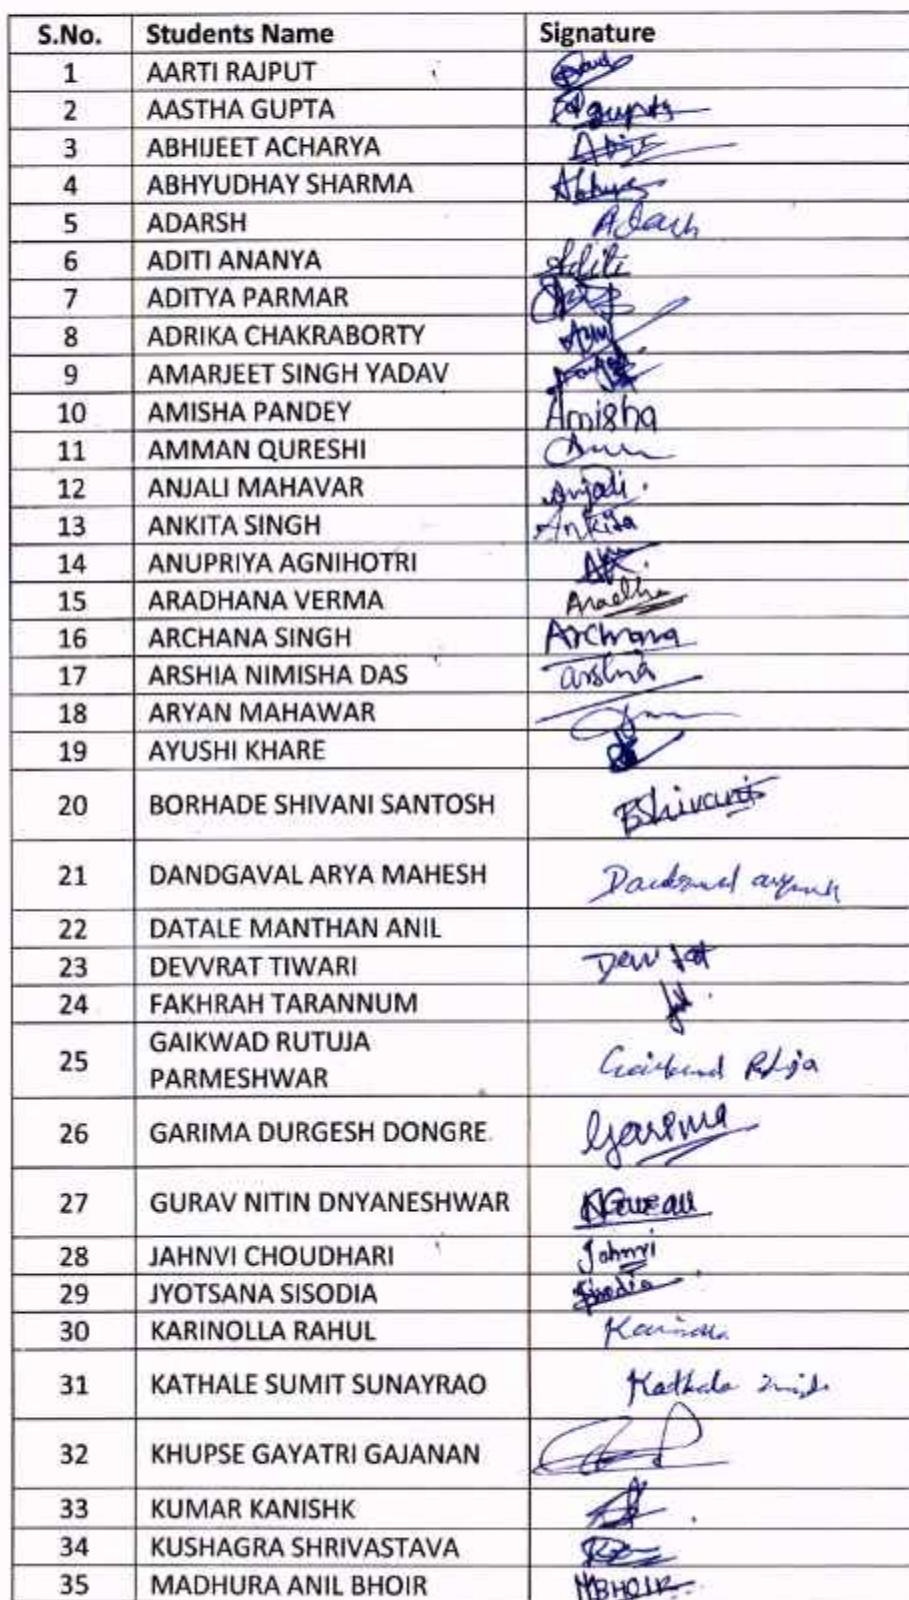 S.No. Students Name Signature
1 AARTI RAJPUT
2 AASTHA GUPTA Agupta
3 ABHIJEET ACHARYA
4 ABHYUDHAY SHARMA
5 ADARSH Adarsh
6 ADITI ANANYA Aditi
7 ADITYA PARMAR
8 ADRIKA CHAKRABORTY
9 AMARJEET SINGH YADAV
10 AMISHA PANDEY Amisha
11 AMMAN QURESHI
12 ANJALI MAHAVAR Anjali.
13 ANKITA SINGH Ankita
14 ANUPRIYA AGNIHOTRI
15 ARADHANA VERMA
16 ARCHANA SINGH Archana
17 ARSHIA NIMISHA DAS Arshia
18 ARYAN MAHAWAR
19 AYUSHI KHARE
20 BORHADE SHIVANI SANTOSH BShivani
21 DANDGAVAL ARYA MAHESH
22 DATALE MANTHAN ANIL
23 DEVVRAT TIWARI
24 FAKHRAH TARANNUM
25 GAIKWAD RUTUJA
PARMESHWAR
26 GARIMA DURGESH DONGRE Garima
27 GURAV NITIN DNYANESHWAR NGurav
28 JAHNVI CHOUDHARI Jahnvi
29 JYOTSANA SISODIA
30 KARINOLLA RAHUL
31 KATHALE SUMIT SUNAYRAO
32 KHUPSE GAYATRI GAJANAN
33 KUMAR KANISHK
34 KUSHAGRA SHRIVASTAVA
35 MADHURA ANIL BHOIR MBHOIR